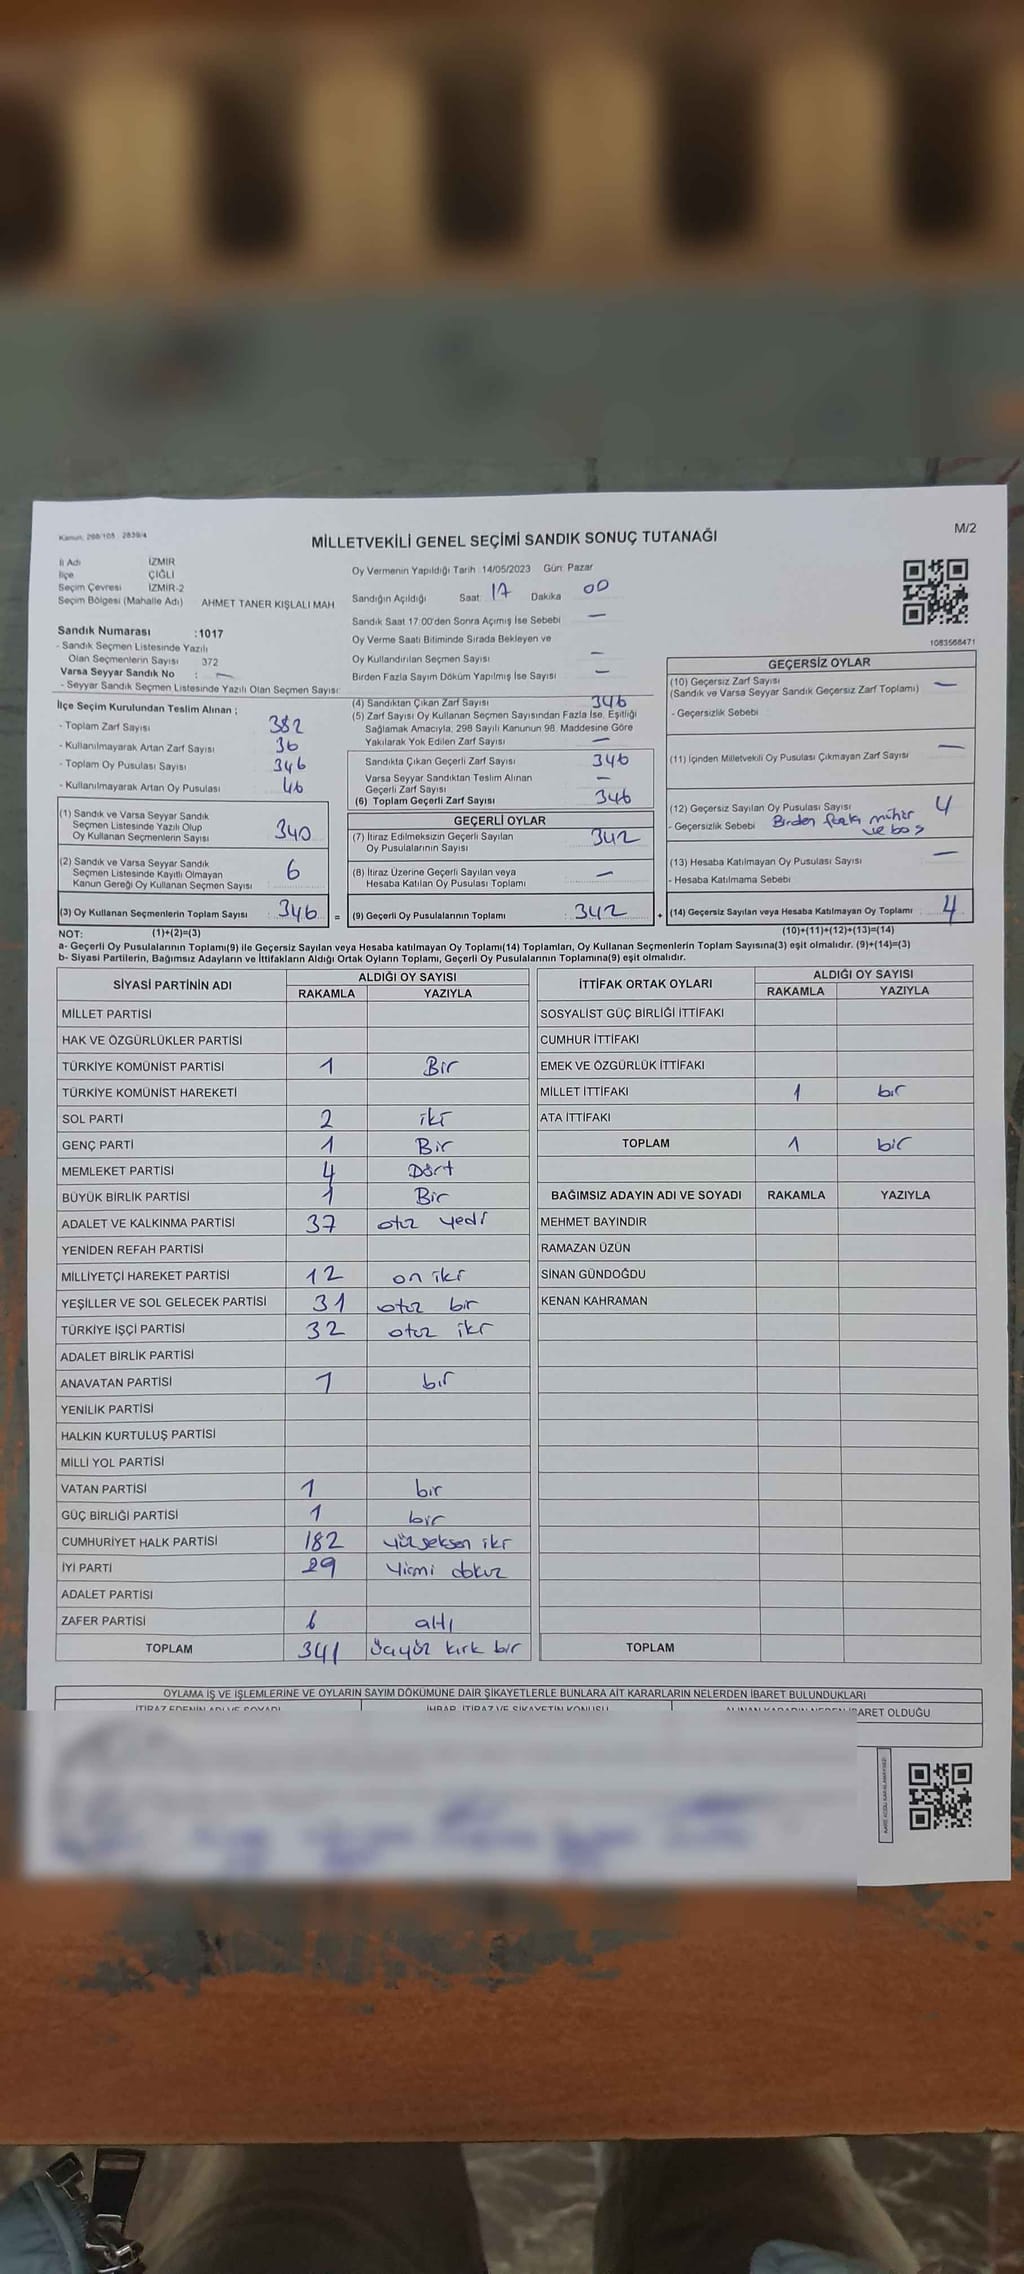 Kanun: 298/105 2839/4
M/2
MİLLETVEKİLİ GENEL SEÇİMİ SANDIK SONUÇ TUTANAĞI
İl Adı İZMİR
İlçe ÇİĞLİ
Seçim Çevresi İZMİR-2
Seçim Bölgesi (Mahalle Adı) AHMET TANER KIŞLALI MAH.
Sandık Numarası :1017
- Sandık Seçmen Listesinde Yazılı
Olan Seçmenlerin Sayısı 372
Varsa Seyyar Sandık No : —
- Seyyar Sandık Seçmen Listesinde Yazılı Olan Seçmen Sayısı:
Oy Vermenin Yapıldığı Tarih :14/05/2023 Gün: Pazar
Sandığın Açıldığı Saat: 17 Dakika 00
Sandık Saat 17:00'den Sonra Açımış İse Sebebi —
Oy Verme Saati Bitiminde Sırada Bekleyen ve
Oy Kullandırılan Seçmen Sayısı —
Birden Fazla Sayım Döküm Yapılmış İse Sayısı —
1083568471
İlçe Seçim Kurulundan Teslim Alınan ;
- Toplam Zarf Sayısı 382
- Kullanılmayarak Artan Zarf Sayısı 36
- Toplam Oy Pusulası Sayısı 346
- Kullanılmayarak Artan Oy Pusulası 46
(1) Sandık ve Varsa Seyyar Sandık
Seçmen Listesinde Yazılı Olup
Oy Kullanan Seçmenlerin Sayısı 340
(2) Sandık ve Varsa Seyyar Sandık
Seçmen Listesinde Kayıtlı Olmayan
Kanun Gereği Oy Kullanan Seçmen Sayısı 6
(3) Oy Kullanan Seçmenlerin Toplam Sayısı : 346 =
(4) Sandıktan Çıkan Zarf Sayısı 346
(5) Zarf Sayısı Oy Kullanan Seçmen Sayısından Fazla İse, Eşitliği
Sağlamak Amacıyla, 298 Sayılı Kanunun 98. Maddesine Göre
Yakılarak Yok Edilen Zarf Sayısı —
Sandıkta Çıkan Geçerli Zarf Sayısı 346
Varsa Seyyar Sandıktan Teslim Alınan
Geçerli Zarf Sayısı —
(6) Toplam Geçerli Zarf Sayısı 346
GEÇERLİ OYLAR
(7) İtiraz Edilmeksizin Geçerli Sayılan
Oy Pusulalarının Sayısı 342
(8) İtiraz Üzerine Geçerli Sayılan veya
Hesaba Katılan Oy Pusulası Toplamı —
(9) Geçerli Oy Pusulalarının Toplamı : 342 +
GEÇERSİZ OYLAR
(10) Geçersiz Zarf Sayısı —
(Sandık ve Varsa Seyyar Sandık Geçersiz Zarf Toplamı)
- Geçersizlik Sebebi
(11) İçinden Milletvekili Oy Pusulası Çıkmayan Zarf Sayısı —
(12) Geçersiz Sayılan Oy Pusulası Sayısı 4
- Geçersizlik Sebebi Birden fazla mühür
ve boş
(13) Hesaba Katılmayan Oy Pusulası Sayısı —
- Hesaba Katılmama Sebebi
(14) Geçersiz Sayılan veya Hesaba Katılmayan Oy Toplamı : 4
NOT: (1)+(2)=(3) (10)+(11)+(12)+(13)=(14)
a- Geçerli Oy Pusulalarının Toplamı(9) ile Geçersiz Sayılan veya Hesaba katılmayan Oy Toplamı(14) Toplamları, Oy Kullanan Seçmenlerin Toplam Sayısına(3) eşit olmalıdır. (9)+(14)=(3)
b- Siyasi Partilerin, Bağımsız Adayların ve İttifakların Aldığı Ortak Oyların Toplamı, Geçerli Oy Pusulalarının Toplamına(9) eşit olmalıdır.
SİYASİ PARTİNİN ADI ALDIĞI OY SAYISI
RAKAMLA YAZIYLA
MİLLET PARTİSİ
HAK VE ÖZGÜRLÜKLER PARTİSİ
TÜRKİYE KOMÜNİST PARTİSİ 1 Bir
TÜRKİYE KOMÜNİST HAREKETİ
SOL PARTİ 2 iki
GENÇ PARTİ 1 Bir
MEMLEKET PARTİSİ 4 Dört
BÜYÜK BİRLİK PARTİSİ 1 Bir
ADALET VE KALKINMA PARTİSİ 37 otuz yedi
YENİDEN REFAH PARTİSİ
MİLLİYETÇİ HAREKET PARTİSİ 12 on iki
YEŞİLLER VE SOL GELECEK PARTİSİ 31 otuz bir
TÜRKİYE İŞÇİ PARTİSİ 32 otuz iki
ADALET BİRLİK PARTİSİ
ANAVATAN PARTİSİ 1 bir
YENİLİK PARTİSİ
HALKIN KURTULUŞ PARTİSİ
MİLLİ YOL PARTİSİ
VATAN PARTİSİ 1 bir
GÜÇ BİRLİĞİ PARTİSİ 1 bir
CUMHURİYET HALK PARTİSİ 182 yüzseksen iki
İYİ PARTİ 29 Yirmi dokuz
ADALET PARTİSİ
ZAFER PARTİSİ 6 altı
TOPLAM 341 üçyüz kırk bir
İTTİFAK ORTAK OYLARI ALDIĞI OY SAYISI
RAKAMLA YAZIYLA
SOSYALİST GÜÇ BİRLİĞİ İTTİFAKI
CUMHUR İTTİFAKI
EMEK VE ÖZGÜRLÜK İTTİFAKI
MİLLET İTTİFAKI 1 bir
ATA İTTİFAKI
TOPLAM 1 bir
BAĞIMSIZ ADAYIN ADI VE SOYADI RAKAMLA YAZIYLA
MEHMET BAYINDIR
RAMAZAN ÜZÜN
SİNAN GÜNDOĞDU
KENAN KAHRAMAN
TOPLAM
OYLAMA İŞ VE İŞLEMLERİNE VE OYLARIN SAYIM DÖKÜMÜNE DAİR ŞİKAYETLERLE BUNLARA AİT KARARLARIN NELERDEN İBARET BULUNDUKLARI
İTİRAZ EDENİN ADI VE SOYADI İHBAR, İTİRAZ VE ŞİKAYETİN KONUSU ALINAN KARARIN NEDEN İBARET OLDUĞU